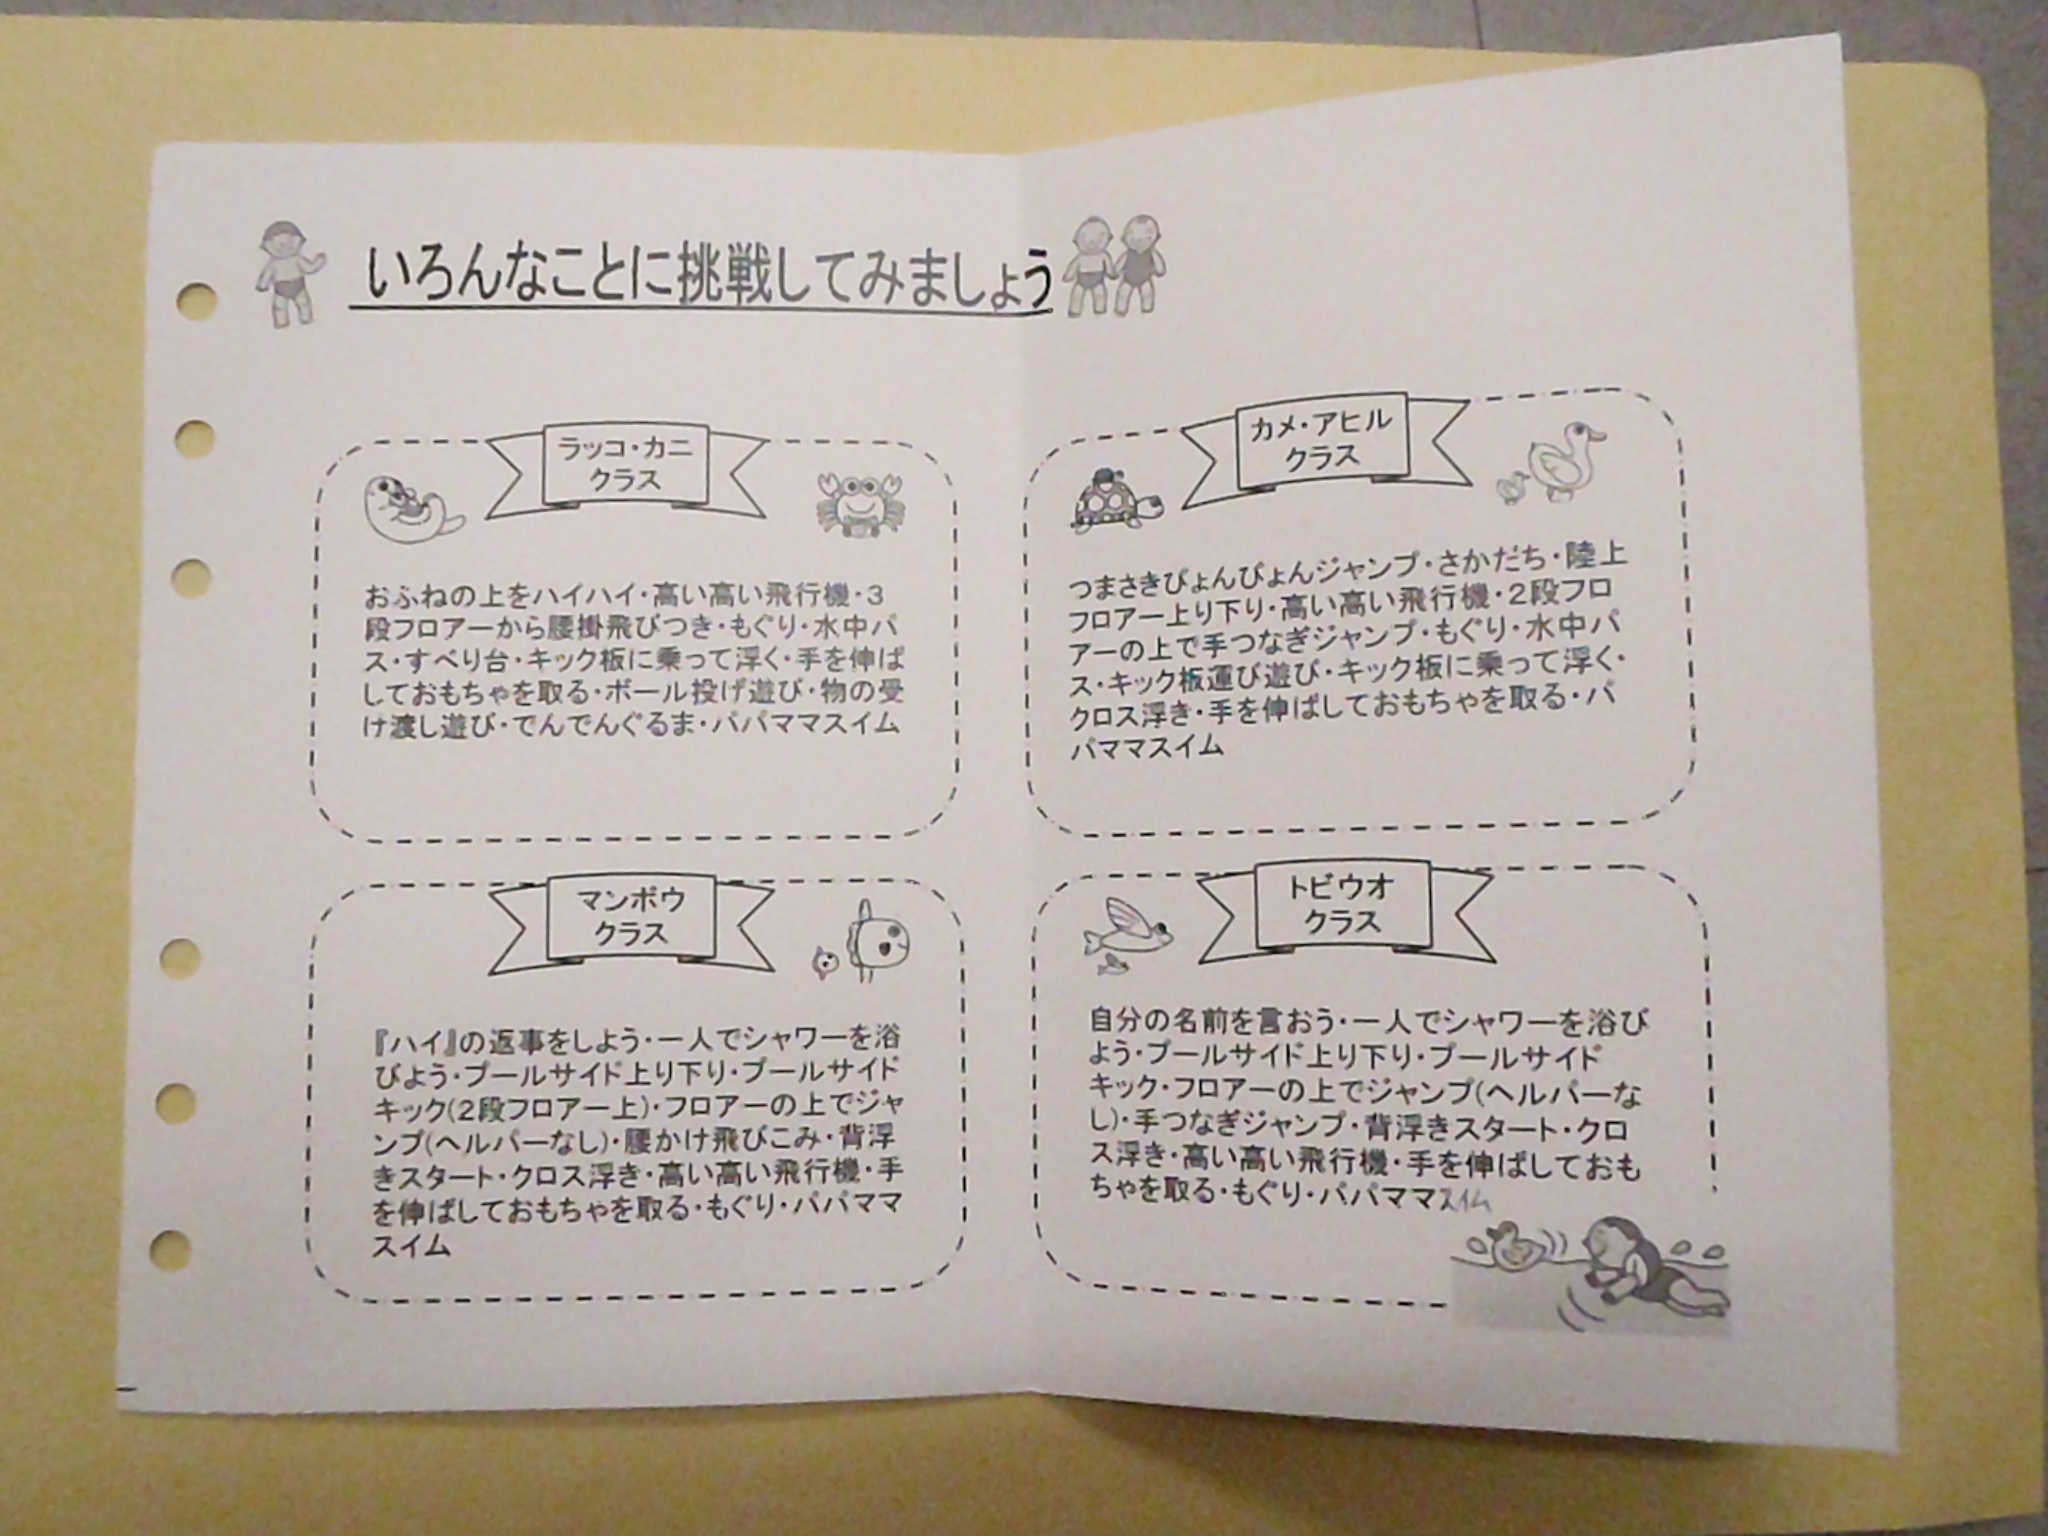 いろんなことに挑戦してみましょう
ラッコ・カニ
クラス
おふねの上をハイハイ・高い高い飛行機・3
段フロアーから腰掛飛びつき・もぐり・水中パ
ス・すべり台・キック板に乗って浮く・手を伸ば
しておもちゃを取る・ボール投げ遊び・物の受
け渡し遊び・でんでんぐるま・パパママスイム
カメ・アヒル
クラス
つまさきぴょんぴょんジャンプ・さかだち・陸上
フロアー上り下り・高い高い飛行機・2段フロ
アーの上で手つなぎジャンプ・もぐり・水中パ
ス・キック板運び遊び・キック板に乗って浮く・
クロス浮き・手を伸ばしておもちゃを取る・パ
パママスイム
マンボウ
クラス
『ハイ』の返事をしよう・一人でシャワーを浴
びよう・プールサイド上り下り・プールサイド
キック(2段フロアー上)・フロアーの上でジャ
ンプ(ヘルパーなし)・腰かけ飛びこみ・背浮
きスタート・クロス浮き・高い高い飛行機・手
を伸ばしておもちゃを取る・もぐり・パパママ
スイム
トビウオ
クラス
自分の名前を言おう・一人でシャワーを浴び
よう・プールサイド上り下り・プールサイド
キック・フロアーの上でジャンプ(ヘルパーな
し)・手つなぎジャンプ・背浮きスタート・クロ
ス浮き・高い高い飛行機・手を伸ばしておも
ちゃを取る・もぐり・パパママスイム